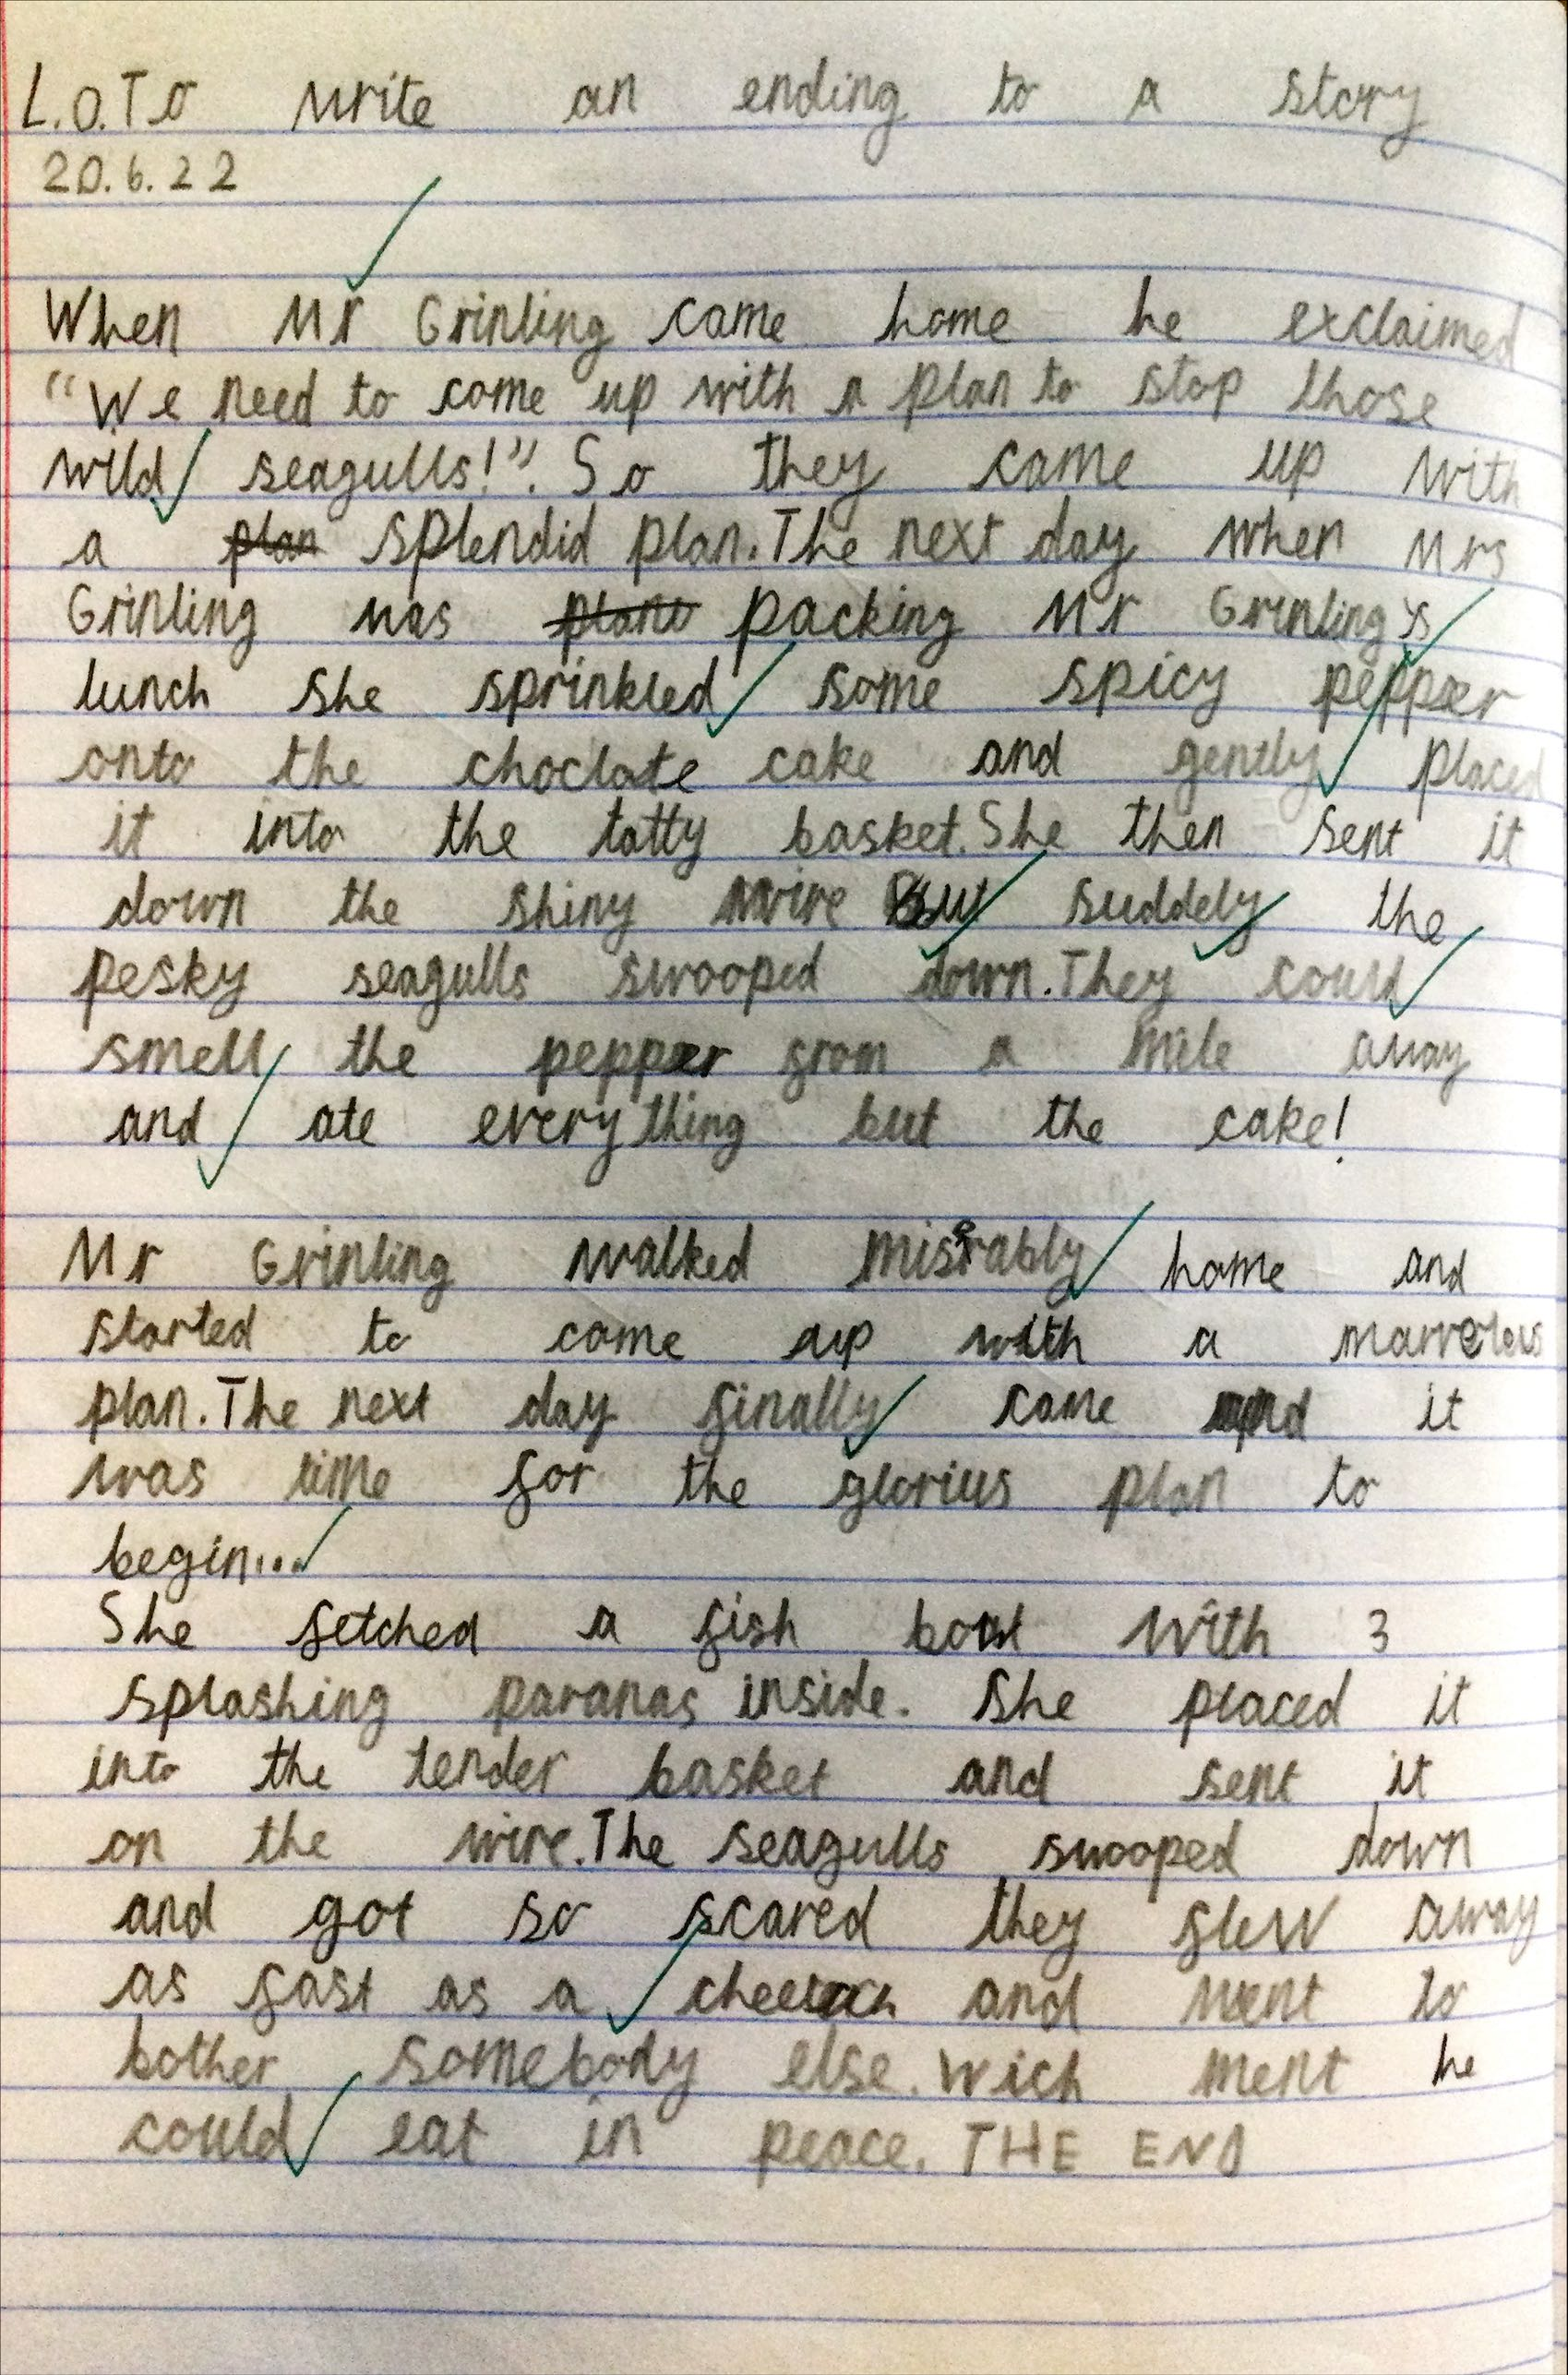 L.O.To write an ending to a story
20.6.22
When Mr Grinling came home he exclaimed
"We need to come up with a plan to stop those
wild seagulls!". So they came up with
a plan splendid plan. The next day when Mrs
Grinling was packing Mr Grinling's
lunch she sprinkled some spicy pepper
onto the choclate cake and gently placed
it into the tatty basket. She then sent it
down the shiny wire But suddely the
pesky seagulls swooped down. They could
smell the pepper from a mile away
and ate everything but the cake!
Mr Grinling walked miserably home and
started to come up with a marvelous
plan. The next day finally came and it
was time for the glorius plan to
begin...
She fetched a fish bowl with 3
splashing paranas inside. She placed it
into the tender basket and sent it
on the wire. The seagulls swooped down
and got so scared they flew away
as fast as a and went to
bother somebody else. Wich ment he
could eat in peace. THE END